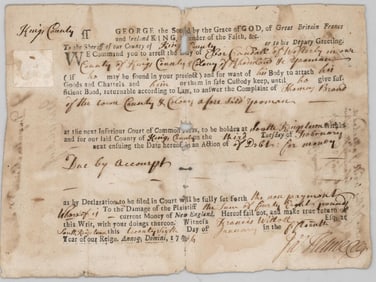 Kings County
GEORGE the Second by the Grace of GOD, of Great Britain France
and Ireland KING, Defender of the Faith, &c.
To the Sheriff of our County of Kings County or to his Deputy Greeting.
WE Command you to arrest the Body of
County of Kings County & Colony of Rhode Island & yeoman
( if he may be found in your precinct) and for want of his Body to attach his
Goods and Chattels and him in safe Custody keep, until he give suf-
ficient Bond, returnable according to Law, to answer the Complaint of Thomas
of the town County & Colony afore said yeoman
at the next Inferiour Court of Common pleas, to be holden at South Kingstown within
and for our said County of Kings County on the third Tuesday of February
next ensuing the Date hereof in an Action of Debt for money
Due by accompt
as by Declaration, to be filed in Court will be fully set forth the non payment
whereof is To the Damage of the Plaintiff the Sum of Eight pounds
current Money of New England, Hereof fail not, and make true return of
this Writ, with your doings thereon. Witness Francis Willett
South Kingstown this Day of January in the
Year of our Reign. Annoq; Domini, 17